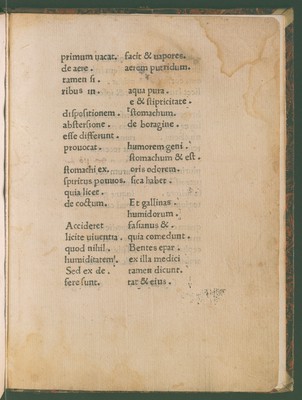 primum uacat. facit & uapores.
de aere. aerem putridum.
tamen si.
ribus in. aqua pura.
e & stipticitate.
dispositionem. stomachum.
abstersione. de boragine.
esse differunt.
prouocat. humorem geni.
stomachum & est.
stomachi ex. oris odorem.
spiritus sica habet.
quia licet.
de coctum. Et gallinas.
humidorum.
Accideret fasianus &.
licite uiuentia. quia comedunt.
quod nihil. Bentes epar.
humiditatem. ex illa medici
Sed ex de. tamen dicunt.
fero sunt. tat & eius.